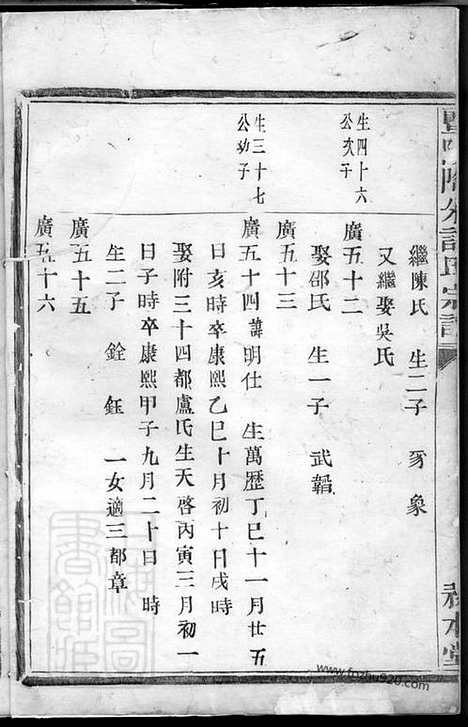 繼陳氏 生二子 豸象
又繼娶吳氏
生四十六公次子
廣五十二
娶邵氏 生一子 武韜
廣五十三
生三十七公幼子
廣五十四諱明仕 生萬歷丁巳十一月廿五
日亥時卒康熙乙巳十月初十日戌時
娶附三十四都盧氏生天啓丙寅三月初一
日子時卒康熙甲子九月二十日 時
生二子 銓 鈺 一女適三都章
廣五十五
廣五十六
www.fmzhu920.com